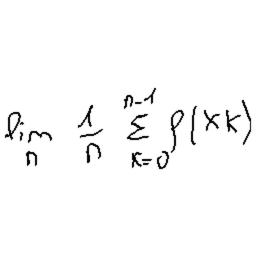 lim_n 1/n ∑_{k=0}^{n-1} ρ(xk)